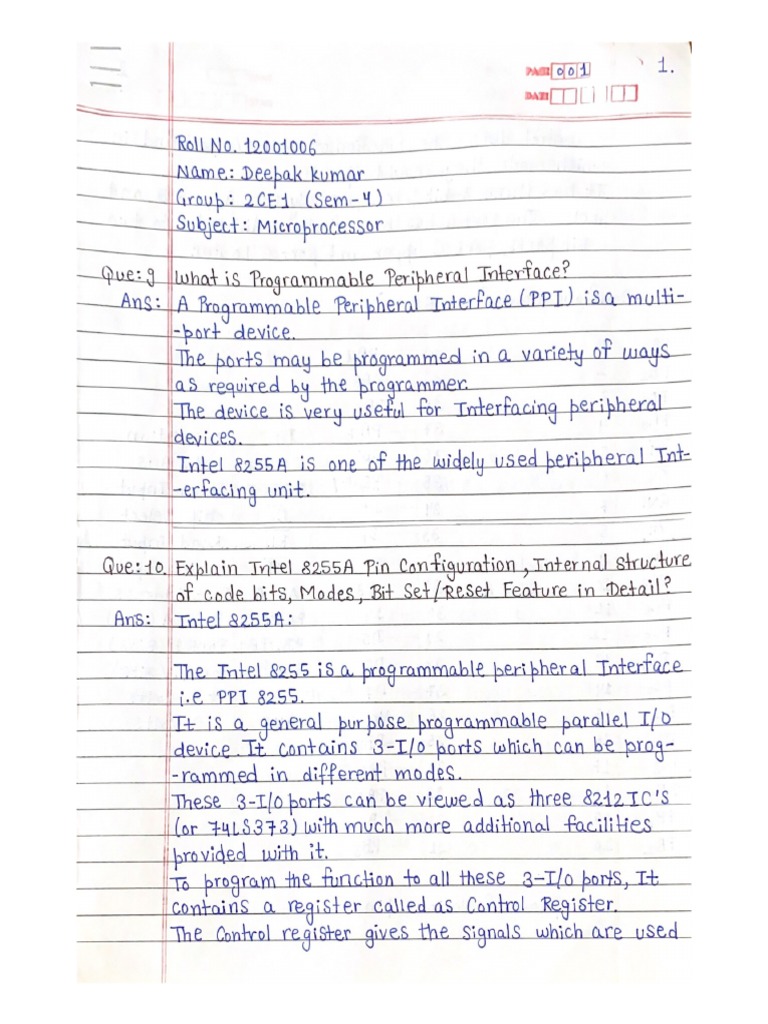 PAGE 001
1.
DATE
Roll No. 12001006
Name: Deepak kumar
Group: 2CE1 (Sem-4)
Subject: Microprocessor
Que:9 What is Programmable Peripheral Interface?
Ans: A Programmable Peripheral Interface (PPI) is a multi-
-port device.
The ports may be programmed in a variety of ways
as required by the programmer.
The device is very useful for Interfacing peripheral
devices.
Intel 8255A is one of the widely used peripheral Int-
-erfacing unit.
Que:10. Explain Intel 8255A Pin Configuration, Internal structure
of code bits, Modes, Bit Set/Reset Feature in Detail?
Ans: Intel 8255A:
The Intel 8255 is a programmable peripheral Interface
i.e PPI 8255.
It is a general purpose programmable parallel I/O
device. It contains 3-I/O ports which can be prog-
-rammed in different modes.
These 3-I/O ports can be viewed as three 8212 IC'S
(or 74LS373) with much more additional facilities
provided with it.
To program the function to all these 3-I/O ports, It
contains a register called as Control Register.
The Control register gives the signals which are used